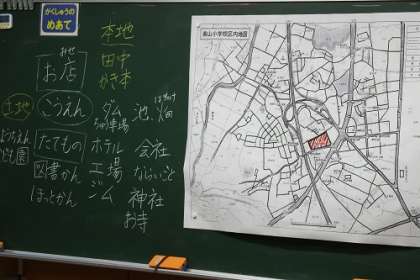 がくしゅうの
めあて
本地
田中
かき本
みせ
お店
土地
こうえん
ダム
ちゅう車場
池
はたけ
畑
ようちえん
こども園
たてもの
ホテル
会社
図書かん
工場
ならいごと
ほけんかん
ジム
神社
お寺
小学校区内地図